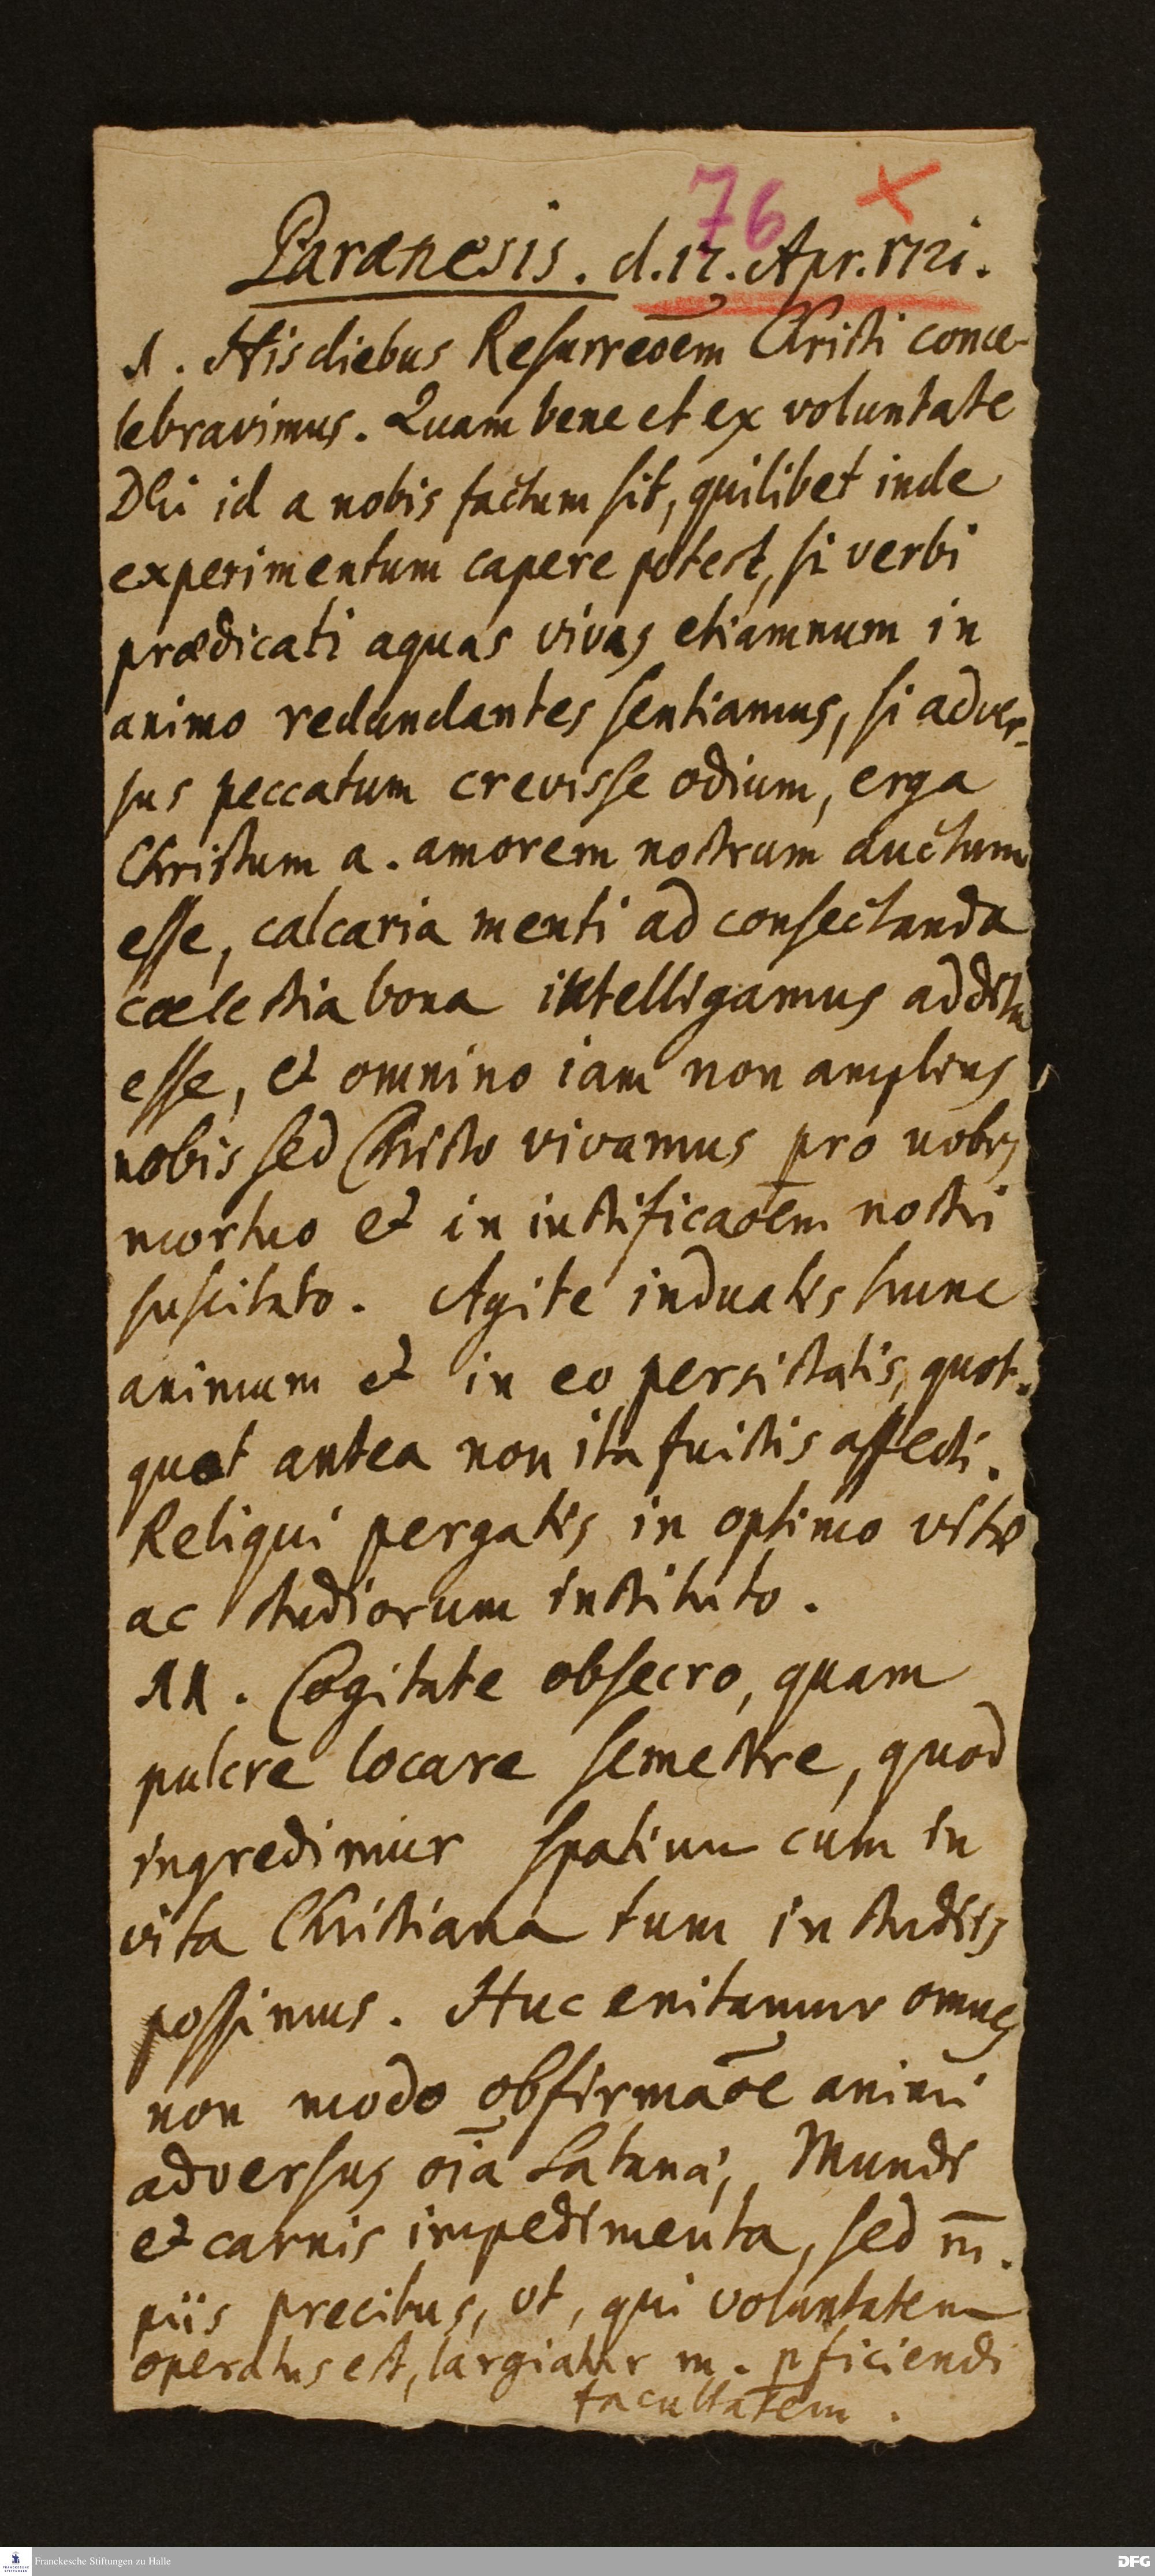 76 ×
Paraenesis. d. 17. Apr. 1721.
I. His diebus Resurreõem Christi conce-
lebravimus. Quam bene et ex voluntate
Dei id a nobis factum sit, quilibet inde
experimentum capere potest, si verbi
prædicati aquas vivas etiamnum in
animo redundantes sentiamus, si adver-
sus peccatum crevisse odium, erga
Christum a. amorem nostrum auctum
esse, calcaria menti ad consectanda
cœlestia bona intelligamus addita
esse, et omnino iam non amplius
nobis sed Christo vivamus pro nobis
mortuo et in iustificaõem nostri
suscitato. Agite induatis hunc
animum et in eo persistatis, quot-
quot antea non ita fuistis affecti.
Reliqui pergatis in optimo vitæ
ac studiorum instituto.
II. Cogitate obsecro, quam
pulcre locare semestre, quod
ingredimur spatium cum in
vita Christiana tum in studiis
possimus. Huc enitamur omnes
non modo obfirmaõe animi
adversus oĩa Satanæ, Mundi
et carnis impedimenta, sed m̅.
piis precibus, ut, qui voluntatem
operatus est, largiatur m. pficiendi
facultatem.
Franckesche Stiftungen zu Halle
DFG